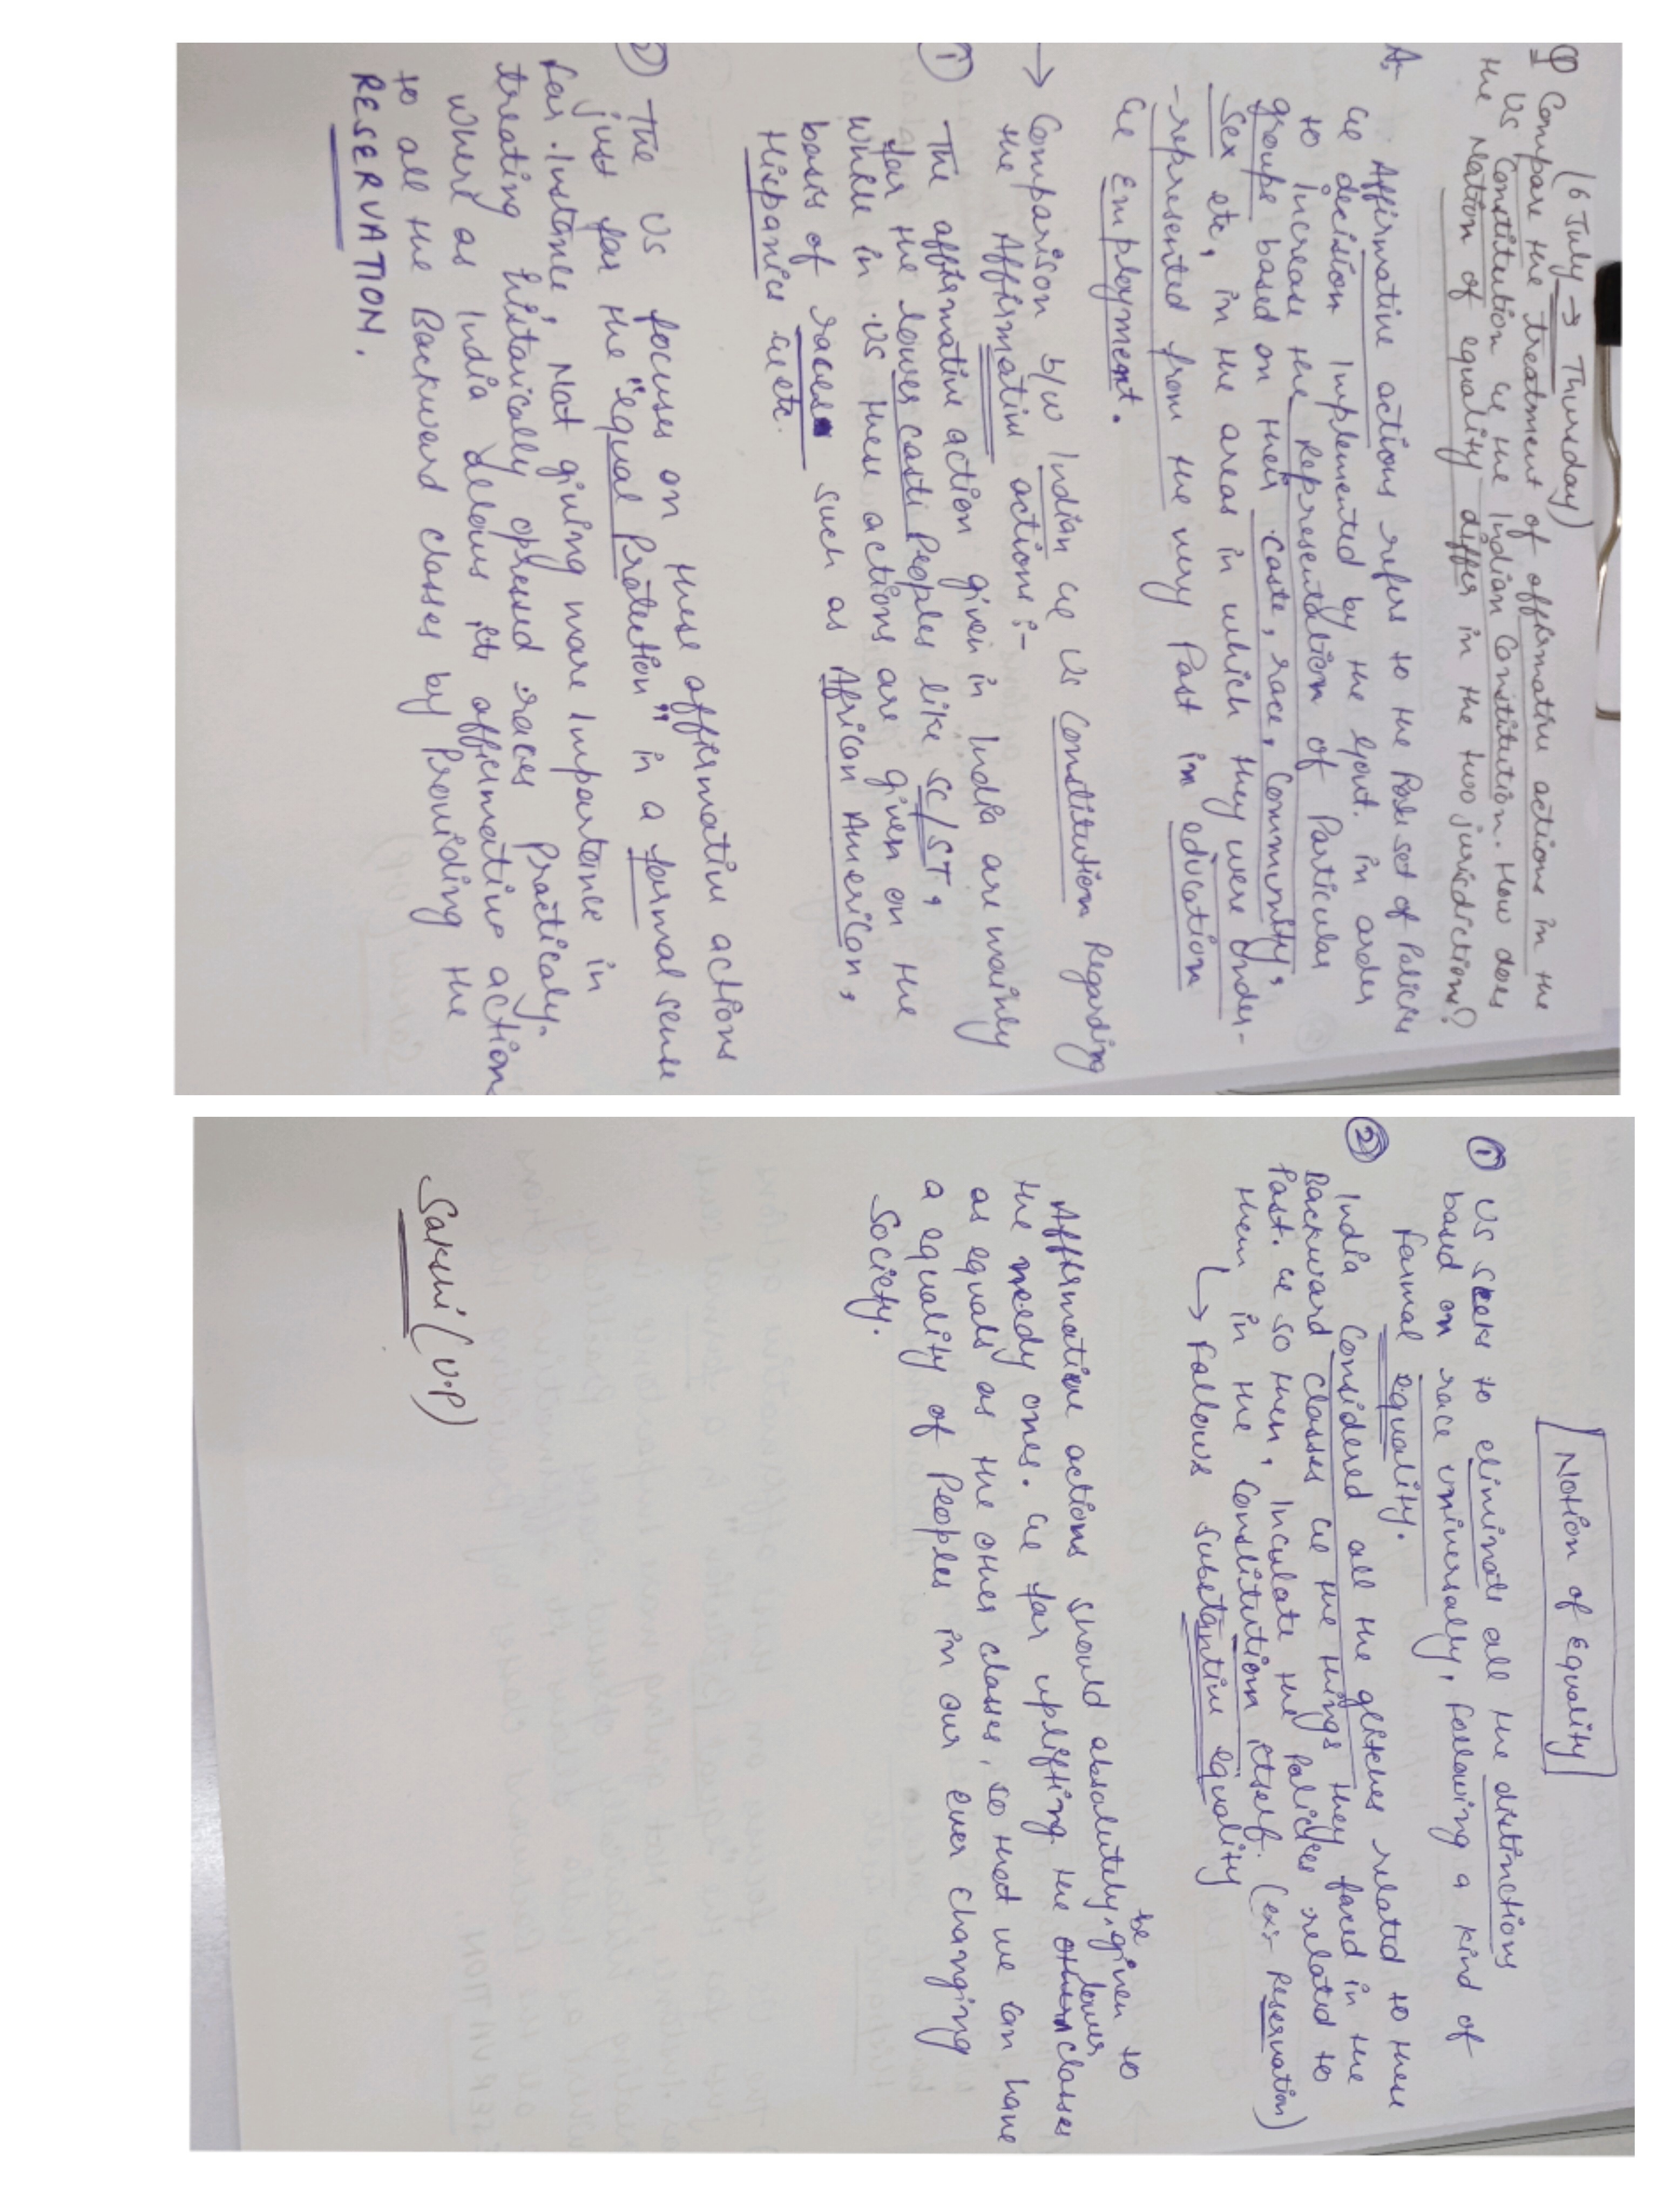 (6 July → Thursday)
Q Compare the treatment of affirmative actions in the
US Constitution & the Indian Constitution. How does
the Nation of equality differ in the two jurisdictions?
A. Affirmative actions refers to the Pol set of Policies
& decision Implemented by the govt. in order
to Increase the Representation of Particular
groups based on their caste, race, Community,
Sex etc, in the areas in which they were under-
-represented from the very Past in education
& Employment.
→ Comparison b/w Indian & US Constitution Regarding
the Affirmative actions :-
① The affirmative action given in India are mainly
for the lower caste Peoples like SC/ST,
While in US these actions are given on the
basis of races such as African American,
Hispanics & etc.
② The US focuses on these affirmative actions
just for the "Equal Protection" in a formal sense
for Instance, Not giving more Importance in
treating historically opressed races Practicaly.
Where as India follows its affirmative action
to all the Backward classes by Providing the
RESERVATION.
Notion of Equality
① US seeks to eliminate all the distinctions
based on race universally, following a kind of
formal equality.
② India Considered all the glitches related to these
Backward classes & the things they faced in the
Past. & so then, Inculcate the Policies related to
them in the Constitution itself. (ex:- Reservation)
↳ Follows Substantive equality
Affirmative actions should absolutely, be given to
the needy ones. & for uplifting the lower classes
as equals as the other classes, so that we can have
a equality of Peoples in our ever changing
Society.
Sakshi (V.P)